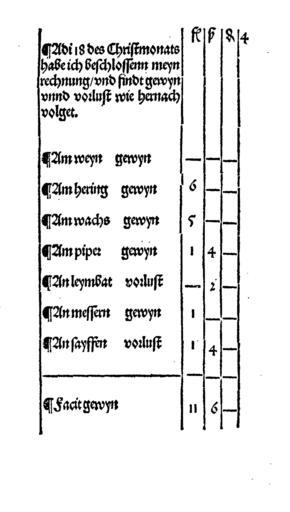 fl ß ₰ 4
¶Adi 18 des Chriſtmonats
habe ich beſchloſſenn meyn
rechnung/vnd findt gewyn
vnnd voꝛluſt wie hernach
volget.
¶Am weyn gewyn — — —
¶Am hering gewyn 6 — —
¶Am wachs gewyn 5 — —
¶Am piper gewyn 1 4 —
¶An leymbat voꝛluſt — 2 —
¶An meſſern gewyn 1 — —
¶An ſayffen voꝛluſt 1 4 —
¶Facit gewyn 11 6 —